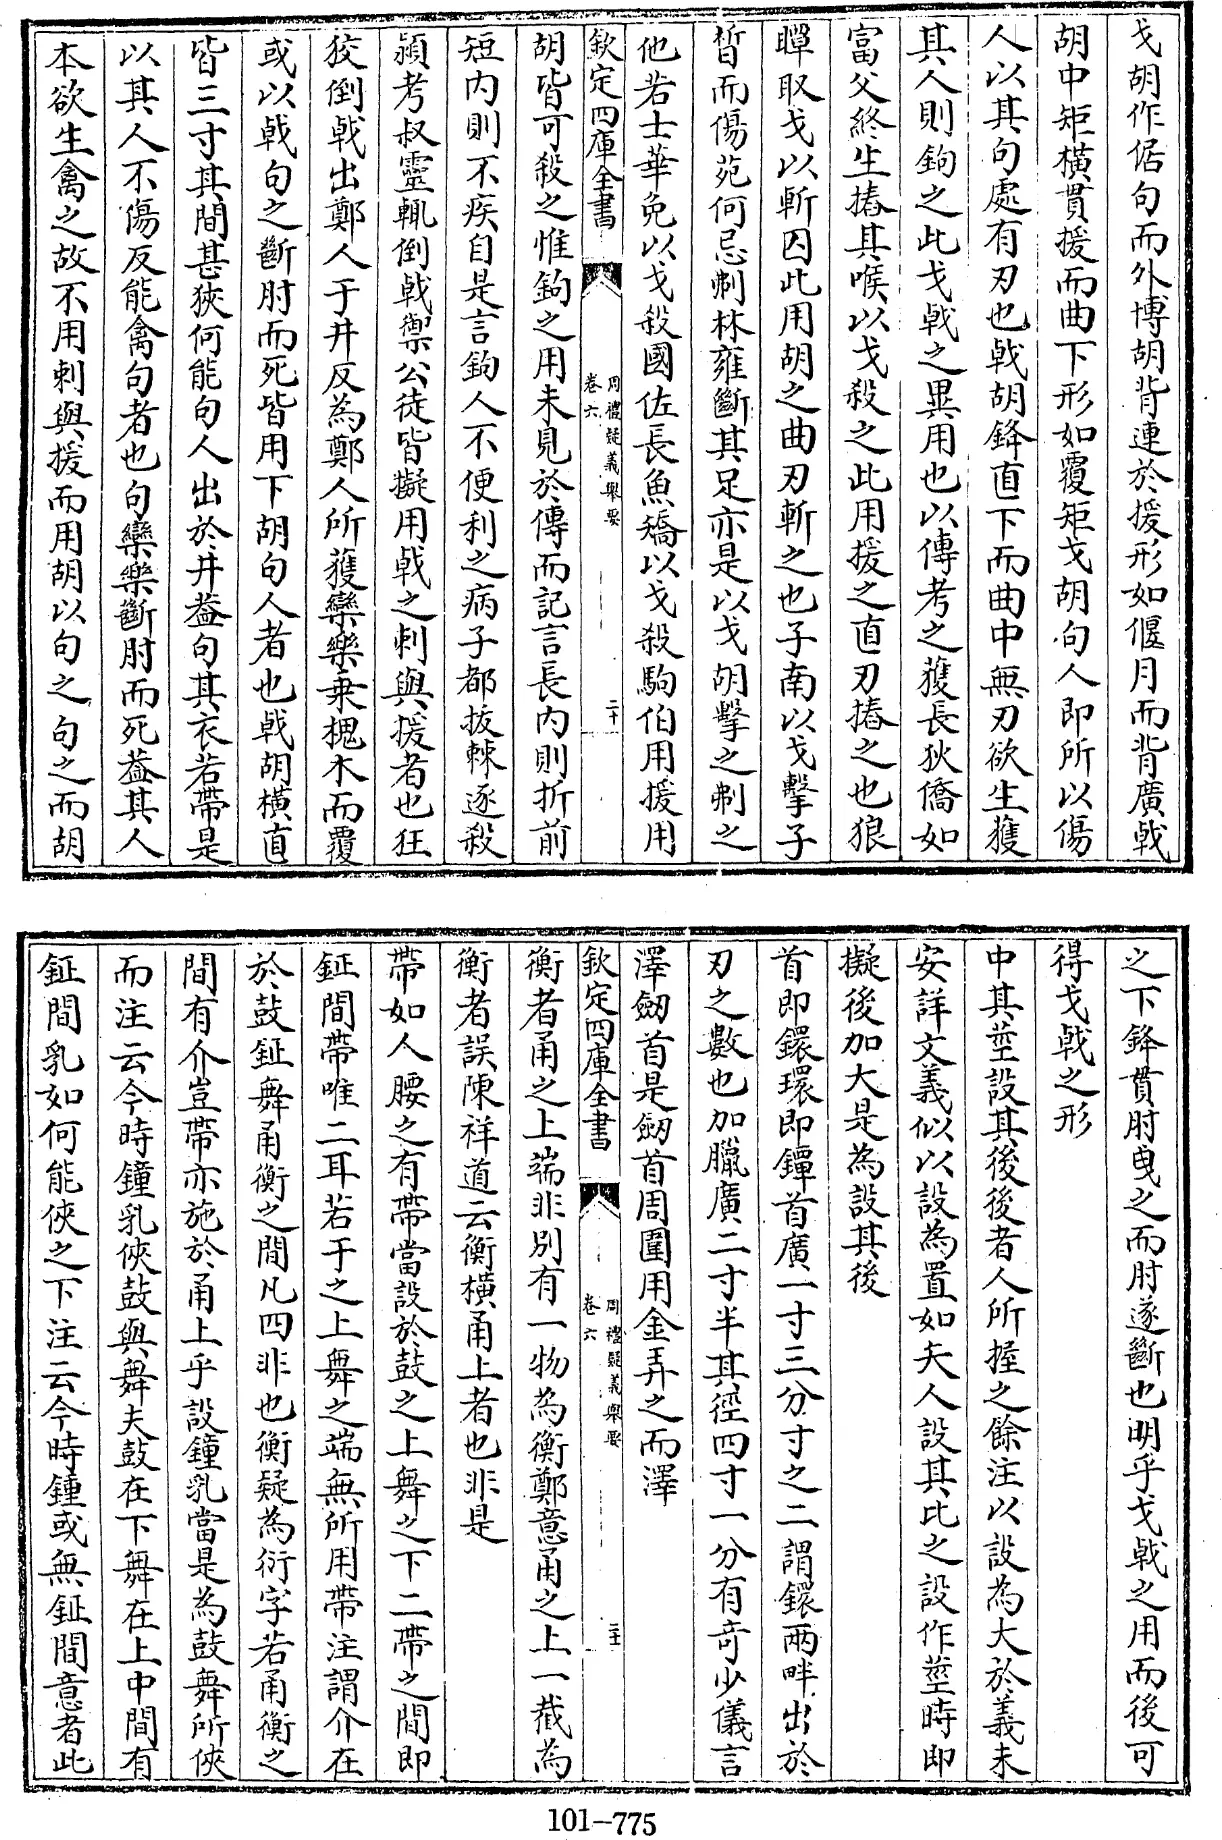 戈胡作倨句而外博胡背連於援形如偃月而背廣戟
胡中矩橫貫援而曲下形如覆矩戈胡句人即所以傷
人以其句處有刃也戟胡鋒直下而曲中無刃欲生獲
其人則鉤之此戈戟之異用也以傳考之獲長狄僑如
富父終生摏其喉以戈殺之此用援之直刃摏之也狼
瞫取戈以斬囚此用胡之曲刃斬之也子南以戈擊子
晳而傷苑何忌刜林雍斷其足亦是以戈胡擊之刜之
他若士華免以戈殺國佐長魚矯以戈殺駒伯用援用
欽定四庫全書
周禮疑義舉要
卷六
二十
胡皆可殺之惟鉤之用未見於傳而記言長內則折前
短內則不疾自是言鉤人不便利之病子都拔棘逐殺
潁考叔靈輒倒戟禦公徒皆擬用戟之刺與援者也狂
狡倒戟出鄭人于井反為鄭人所獲欒樂乗槐木而覆
或以戟句之斷肘而死皆用下胡句人者也戟胡橫直
皆三寸其間甚狹何能句人出於井葢句其衣若帶是
以其人不傷反能禽句者也句欒樂斷肘而死葢其人
本欲生禽之故不用刺與援而用胡以句之句之而胡
之下鋒貫肘曳之而肘遂斷也明乎戈戟之用而後可
得戈戟之形
中其莖設其後後者人所握之餘注以設為大於義未
安詳文義似以設為置如夫人設其比之設作莖時即
擬後加大是為設其後
首即鐶環即鐔首廣一寸三分寸之二謂鐶兩畔出於
刃之數也加臘廣二寸半其徑四寸一分有奇少儀言
澤劒首是劒首周圍用金弄之而澤
欽定四庫全書
周禮疑義舉要
卷六
二十一
衡者甬之上端非別有一物為衡鄭意甬之上一截為
衡者誤陳祥道云衡橫甬上者也非是
帶如人腰之有帶當設於鼓之上舞之下二帶之間即
鉦間帶唯二耳若于之上舞之端無所用帶注謂介在
於鼓鉦舞甬衡之間凡四非也衡疑為衍字若甬衡之
間有介豈帶亦施於甬上乎設鐘乳當是為鼓舞所俠
而注云今時鐘乳俠鼓與舞夫鼓在下舞在上中間有
鉦間乳如何能俠之下注云今時鍾或無鉦間意者此
101-775